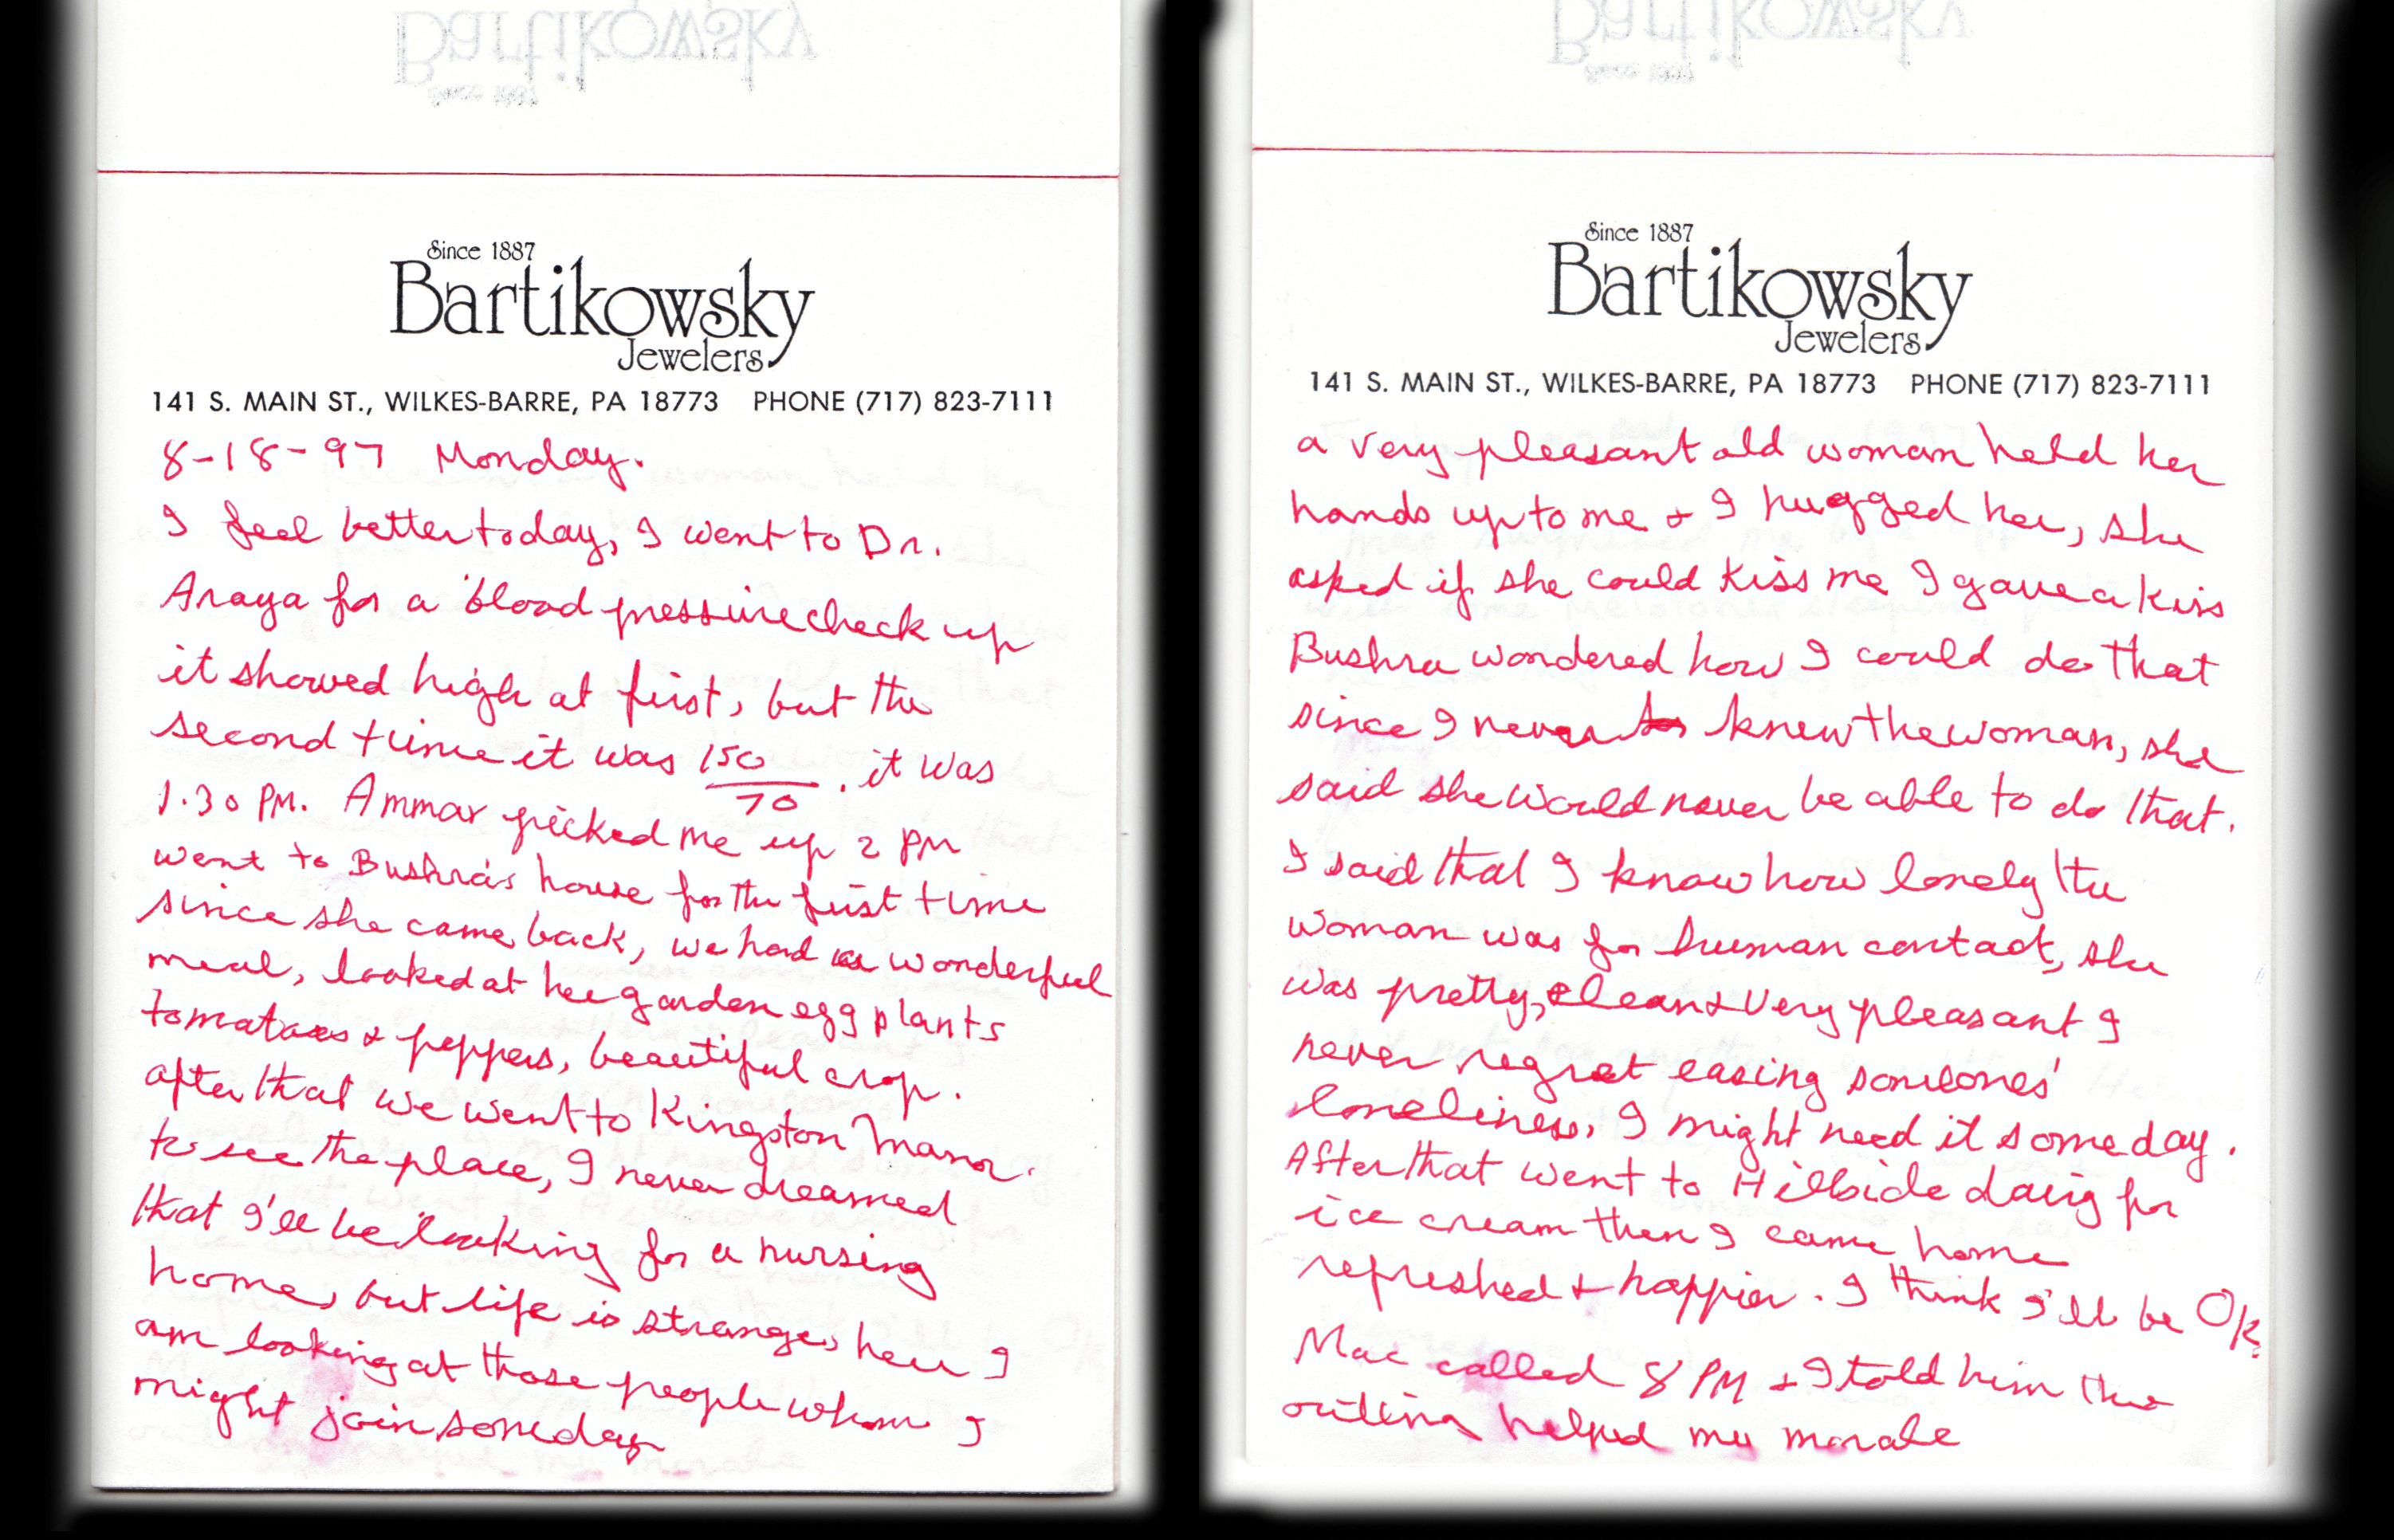 Bartikowsky
Since 1887
Since 1887
Bartikowsky
Jewelers
141 S. MAIN ST., WILKES-BARRE, PA 18773 PHONE (717) 823-7111
8-18-97 Monday.
I feel better today, I went to Dr.
Araya for a blood pressure check up
it showed high at first, but the
second time it was 150/70. it was
1.30 PM. Ammar picked me up 2 PM
went to Bushra's house for the first time
since she came back, we had a wonderful
meal, looked at her garden egg plants
tomatoes & peppers, beautiful crop.
after that we went to Kingston Manor.
to see the place, I never dreamed
that I'll be looking for a nursing
home, but life is strange, here I
am looking at those people whom I
might join someday
Bartikowsky
Since 1887
Since 1887
Bartikowsky
Jewelers
141 S. MAIN ST., WILKES-BARRE, PA 18773 PHONE (717) 823-7111
a very pleasant old woman held her
hands up to me & I hugged her, she
asked if she could kiss me I gave a kiss
Bushra wondered how I could do that
since I never knew the woman, she
said she would never be able to do that.
I said that I know how lonely the
woman was for human contact, she
was pretty, clean & very pleasant I
never regret easing someones'
loneliness, I might need it someday.
After that went to Hillside dairy for
ice cream then I came home
refreshed & happier. I think I'll be O/K.
Mac called 8 PM & I told him the
outing helped my morale